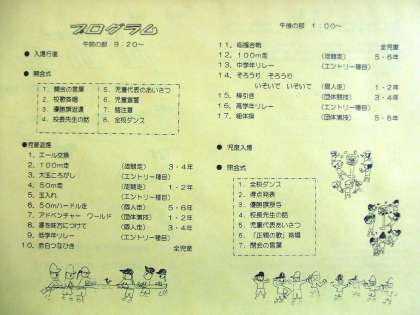 プログラム
午前の部 9:20~
● 入場行進
● 開会式
1. 開会の言葉
2. 校歌斉唱
3. 優勝旗返還
4. 校長先生の話
5. 児童代表のあいさつ
6. 児童宣誓
7. 諸注意
8. 全校ダンス
1. エール交換
2. 100m走 (徒競走) 3・4年
3. 大玉ころがし (エントリー種目)
4. 50m走 (徒競走) 1・2年
5. 玉入れ (エントリー種目)
6. 50mハードル走 (個人走) 5・6年
7. アドベンチャー ワールド (団体演技) 1・2年
8. 運を味方につけて (個人走) 3・4年
9. 低学年リレー (エントリー種目)
10. 赤白つなひき 全児童
午後の部 1:00~
11. 応援合戦 全児童
12. 100m走 (徒競走) 5・6年
13. 中学年リレー (エントリー種目)
14. そろうり そろうり
いそいで いそいで (個人走) 1・2年
15. 棒引き (団体競技) 3・4年
16. 高学年リレー (エントリー種目)
17. 組体操 (団体演技) 5・6年
● 児童入場
● 閉会式
1. 全校ダンス
2. 得点発表
3. 優勝旗授与
4. 校長先生の話
5. 児童代表あいさつ
6. 「正親の歌」斉唱
7. 閉会の言葉